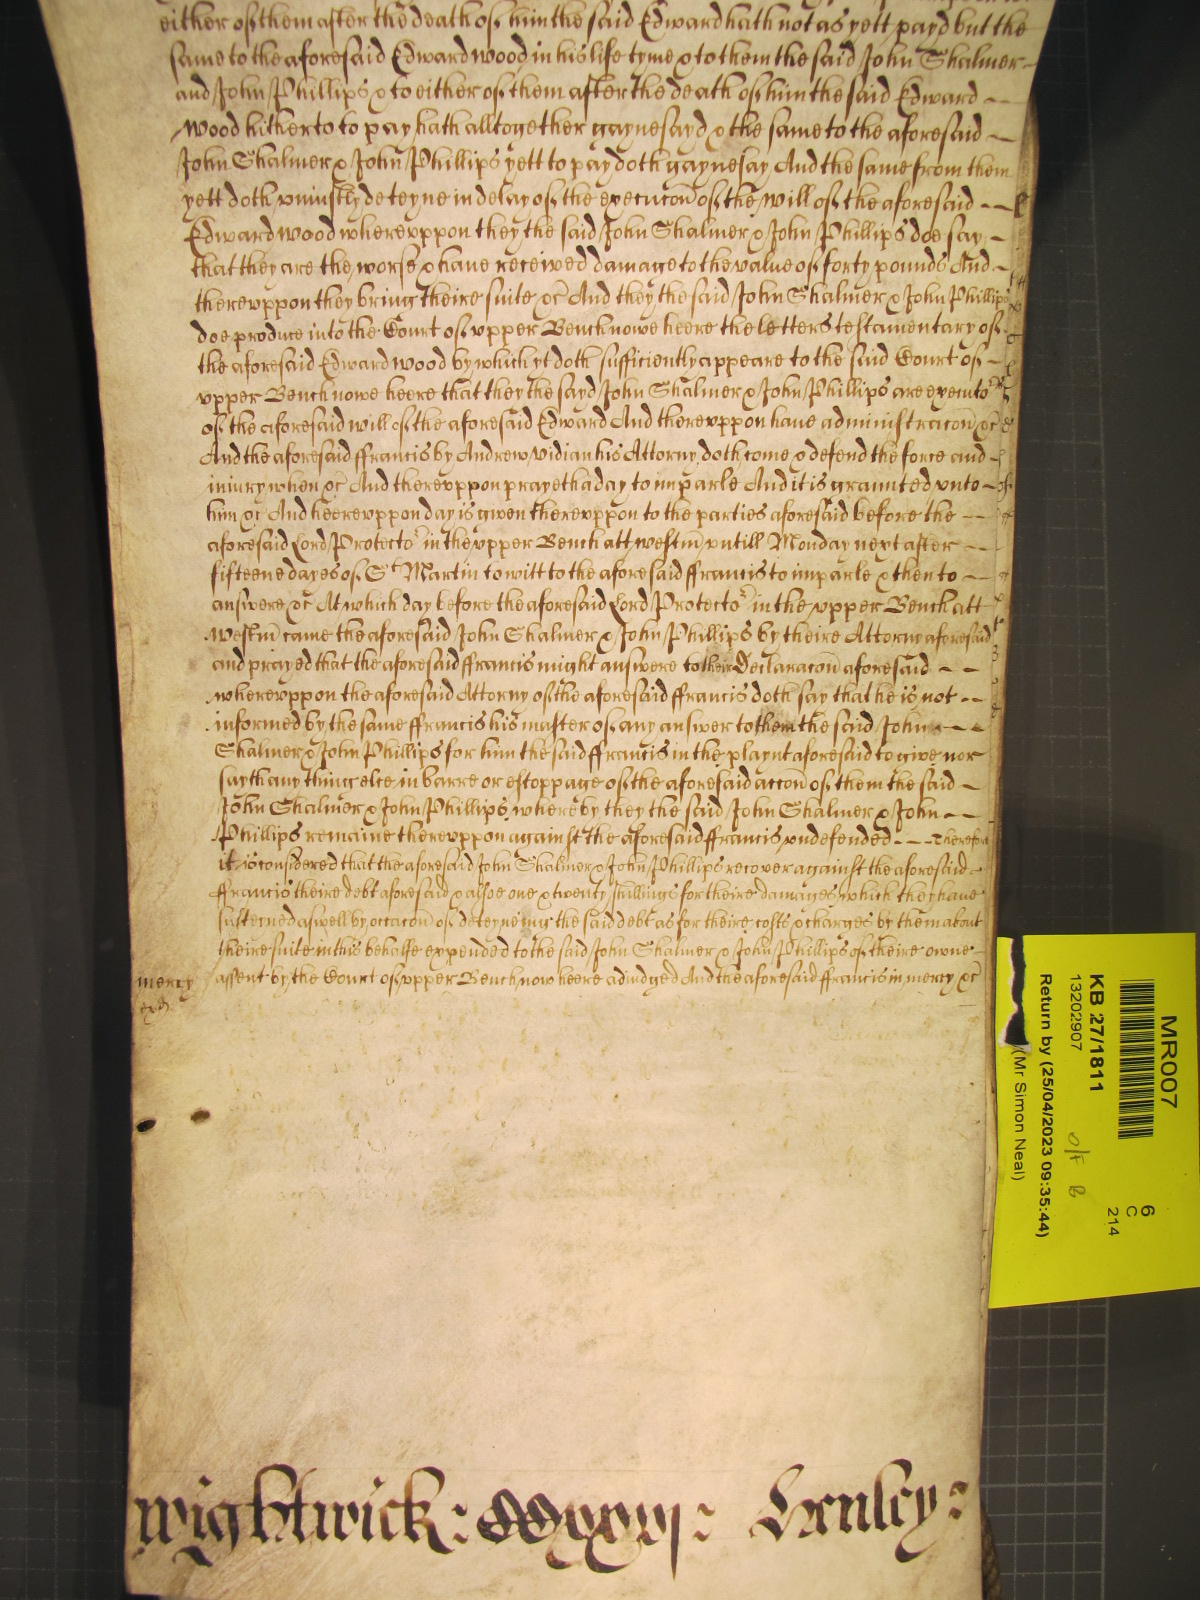 either of them after the death of him the said Edward hath not as yett payd but the
same to the aforesaid Edward Wood in his life tyme & to them the said John Skalmer
and John Phillips & to either of them after the death of him the said Edward
Wood hitherto to pay hath alltogether gaynesayd & the same to the aforesaid
John Skalmer & John Phillips yett to pay doth gaynesay And the same from them
yett doth uniustly deteyne in delay of the execucon of the will of the aforesaid
Edward Wood whereuppon they the said John Skalmer & John Phillips doe say
that they are the worse & have received damage to the value of forty pounds And
thereuppon they bring theire suite &c And they the said John Skalmer & John Phillips
doe produce into the Court of upper Bench nowe heere the letters testamentary of
the aforesaid Edward Wood by which yt doth sufficiently appeare to the said Court of
upper Bench nowe heere that they the sayd John Skalmer & John Phillips are executors
of the aforesaid will of the aforesaid Edward And thereuppon have administracon &c
And the aforesaid ffrancis by Andrew Vidian his Attorny doth come & defend the force and
iniury when &c And thereuppon prayeth a day to imparle And it is graunted unto
him &c And heereuppon day is given thereuppon to the parties aforesaid before the
aforesaid Lord Protector in the upper Bench att Westm untill Monday next after
fifteene dayes of St Martin to witt to the aforesaid ffrancis to imparle & then to
answere &c At which day before the aforesaid Lord Protector in the upper Bench att
Westm came the aforesaid John Skalmer & John Phillips by theire Attorny aforesaid
and prayed that the aforesaid ffrancis might answere to their Declaracon aforesaid
whereuppon the aforesaid Attorny of the aforesaid ffrancis doth say that he is not
informed by the same ffrancis his master of any answer to them the said John
Skalmer & John Phillips for him the said ffrancis in the playnt aforesaid to give nor
sayth any thing else in barre or estoppage of the aforesaid accon of them the said
John Skalmer & John Phillips whereby they the said John Skalmer & John
Phillips remaine thereuppon against the aforesaid ffrancis undefended Therefore
it is considered that the aforesaid John Skalmer & John Phillips recover against the aforesaid
ffrancis theire debt aforesaid & alsoe one & twenty shillings for theire damages which they have
susteened aswell by occacon of deteyneing the said debt as for theire costs & charges by them about
theire suite in this behalfe expended to the said John Skalmer & John Phillips of theire owne
mercy assent by the Court of upper Bench now heere adiudged And the aforesaid ffrancis in mercy &c
Wightwick: CCxxxvi: Henley:
MR007
KB 27/1811
13202907
Return by (25/04/2023 09:35:44)
(Mr Simon Neal)
6
C
214